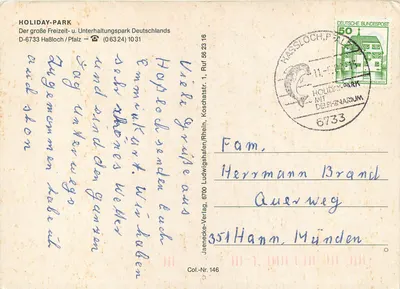 HOLIDAY-PARK
Der große Freizeit- u. Unterhaltungspark Deutschlands
D-6733 Haßloch/Pfalz – ☎ (0 63 24) 10 31
Viele Grüße aus
Haßloch senden Euch
Wir haben
sehr schönes Wetter
und sind den ganzen
Tag unterwegs
zugenommen habe
auch schon
Jaenecke-Verlag, 6700 Ludwigshafen/Rhein, Koschatstr. 1, Ruf 56 23 16
Col.-Nr. 146
HASSLOCH, PF
HOLIDAY PARK
MIT
DELPHINARIUM
6733
50
DEUTSCHE BUNDESPOST
Fam.
Herrmann Brand
Auerweg
351 Hann. Münden